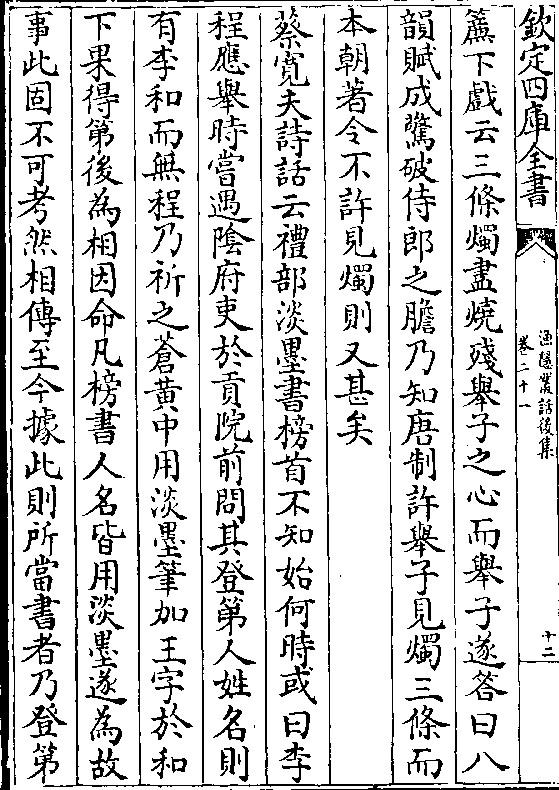 欽定四庫全書
漁隱叢話後集
卷二十一
十二
簾下戲云三條燭盡燒殘舉子之心而舉子遂答曰八
韻賦成驚破侍郎之膽乃知唐制許舉子見燭三條而
本朝著令不許見燭則又甚矣
蔡寛夫詩話云禮部淡墨書榜首不知始何時或曰李
程應舉時嘗遇隂府吏於貢院前問其登第人姓名則
有李和而無程乃祈之蒼黄中用淡墨筆加王字於和
下果得第後為相因命凡榜書人名皆用淡墨遂為故
事此固不可考然相傳至今據此則所當書者乃登第